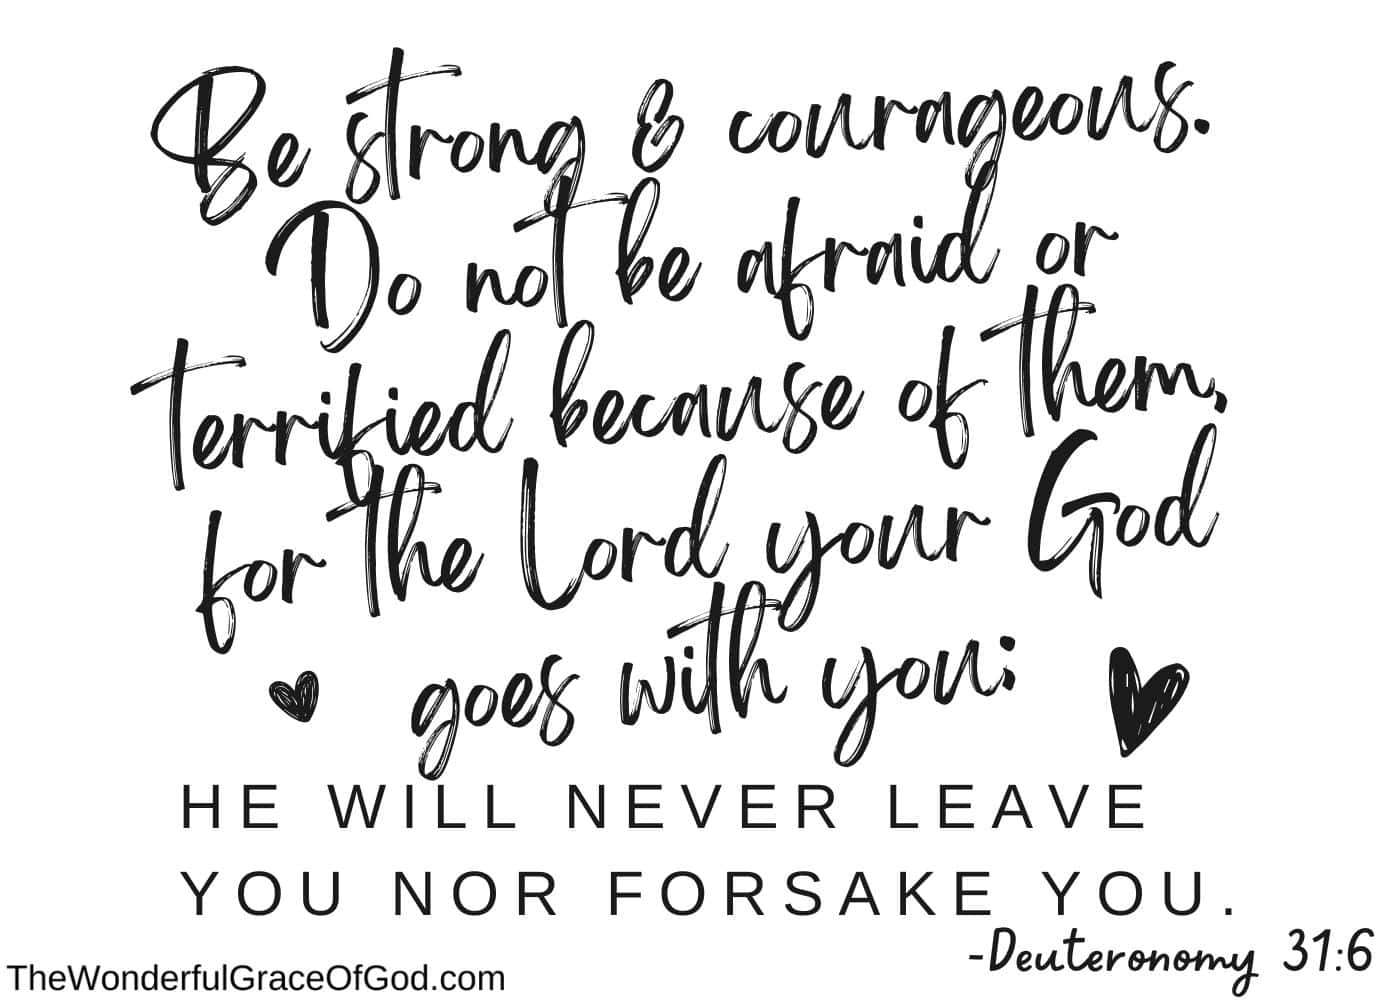 Be strong & courageous.
Do not be afraid or
terrified because of them,
for the Lord your God
goes with you;
HE WILL NEVER LEAVE
YOU NOR FORSAKE YOU.
-Deuteronomy 31:6
TheWonderfulGraceOfGod.com